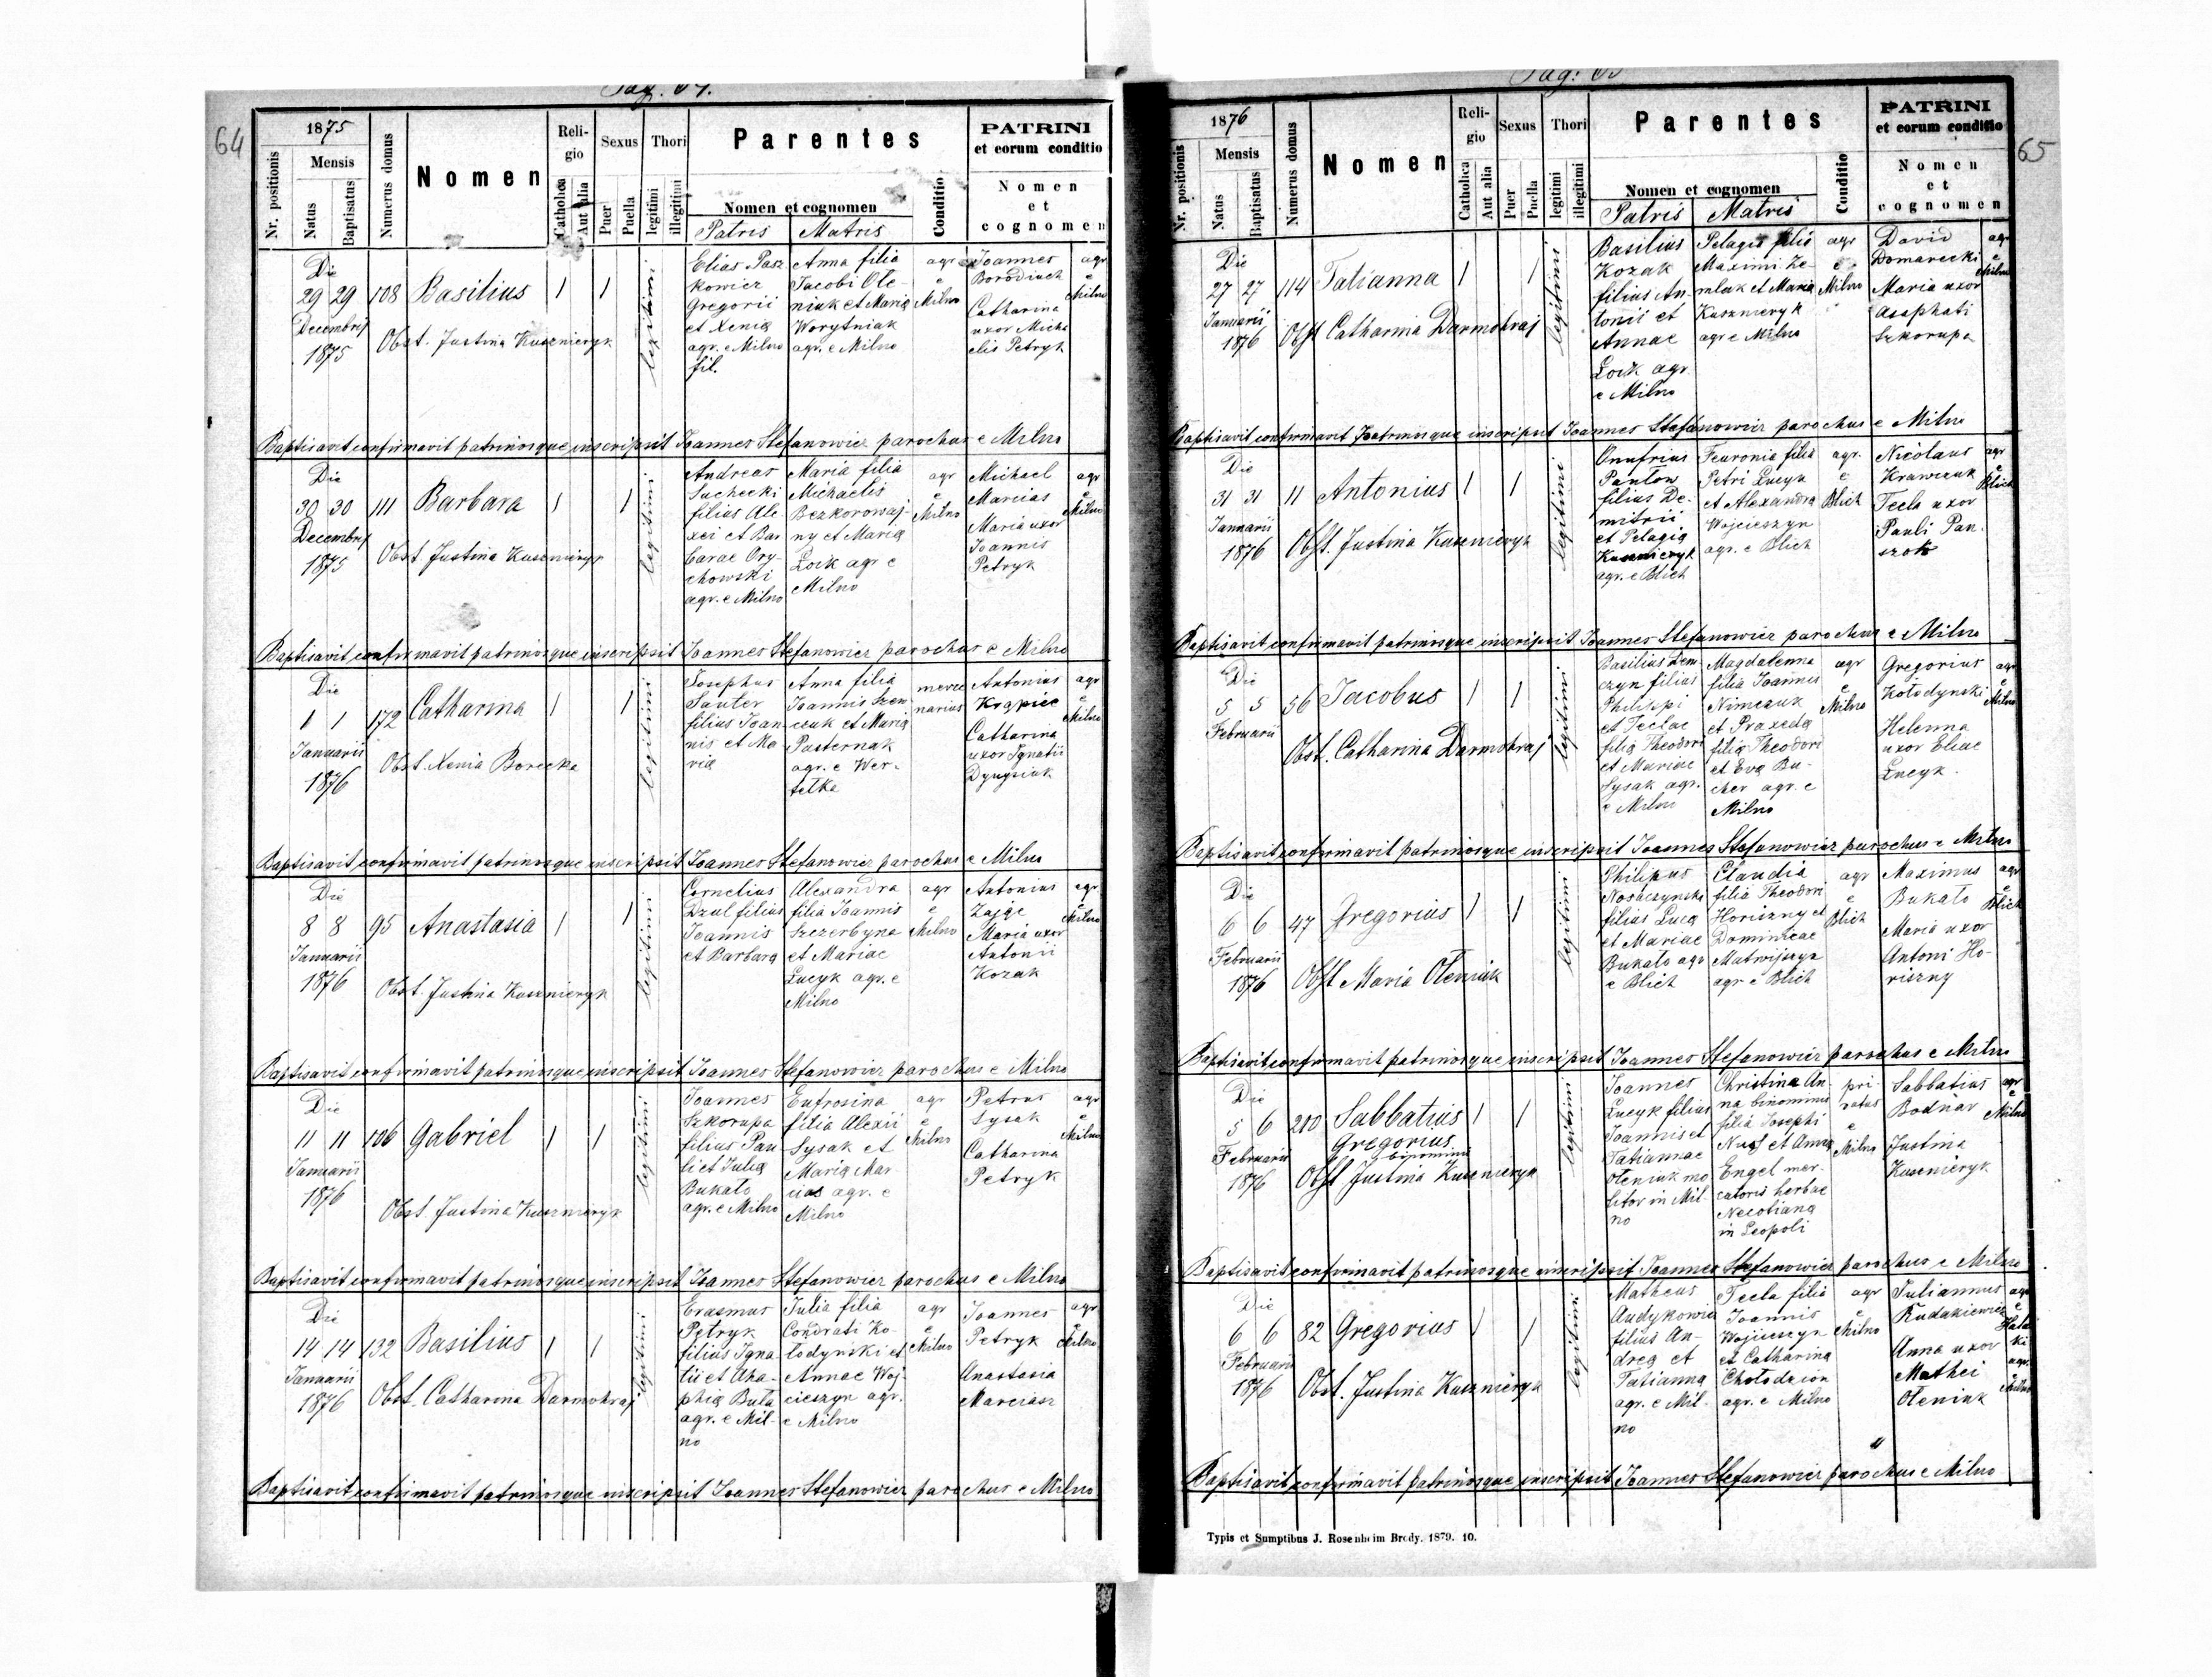 Pag. 64.
64
1875
Nr. positionis
Mensis
Natus
Baptisatus
Numerus domus
Nomen
Religio
Catholica
Aut alia
Sexus
Puer
Puella
Thori
legitimi
illegitimi
Parentes
Nomen et cognomen
Patris Matris
Conditio
PATRINI
et eorum conditio
Nomen
et
cognomen
Die
29 29 108 Basilius 1 1
Decembrij
1875
Obst. Justina Kusznieryk
legitimi
Elias Pasz
kowicz
Gregorii
et Xenia
agr. e Milno
fil.
Anna filia
Jacobi Ole-
niuk et Maria
Worytniak
agr. e Milno
agr
e
Milno
Joannes
Borodiuch
Catharina
uxor Micha
elis Petryk
agr
e
Milno
Baptisavit confirmavit patrinosque inscripsit Joannes Stefanowicz parochus e Milno
Die
30 30 111 Barbara 1 1
Decembrij
1875
Obst. Justina Kusznieryk
legitimi
Andreas
Suchecki
filius Ale-
xei et Bar
barae Ory-
chowski
agr. e Milno
Maria filia
Michaelis
Bezkorowaj-
ny et Maria
Łoik agr e
Milno
agr
e
Milno
Michael
Marcias
Maria uxor
Joannis
Petryk
agr
e
Milno
Baptisavit confirmavit patrinosque inscripsit Joannes Stefanowicz parochus e Milno
Die
1 1 172 Catharina 1 1
Januarii
1876
Obst. Xenia Borecka
legitimi
Josephus
Sauter
filius Joan-
nis et Ma
ria
Anna filia
Joannis Szew
czuk et Maria
Pasternak
agr. e Wer-
telka
merce
narius
Antonius
Krąpiec
Catharina
uxor Ignatii
Dyugsiuk
agr
e
Milno
Baptisavit confirmavit patrinosque inscripsit Joannes Stefanowicz parochus e Milno
Die
8 8 95 Anastasia 1 1
Januarii
1876
Obst. Justina Kusznieryk
legitimi
Cornelius
Dzul filius
Joannis
et Barbara
Alexandra
filia Joannis
Szczerbyna
et Mariae
Łucyk agr. e
Milno
agr
e
Milno
Antonius
Zając
Maria uxor
Antonii
Kozak
agr
e
Milno
Baptisavit confirmavit patrinosque inscripsit Joannes Stefanowicz parochus e Milno
Die
11 11 106 Gabriel 1 1
Januarii
1876
Obst. Justina Kusznieryk
legitimi
Joannes
Szkorupa
filius Pau
li et Julia
Bukato
agr. e Milno
Eufrosina
filia Alexii
Sysak et
Maria Mar
cias agr. e
Milno
agr
e
Milno
Petrus
Sysak
Catharina
Petryk
agr
e
Milno
Baptisavit confirmavit patrinosque inscripsit Joannes Stefanowicz parochus e Milno
Die
14 14 132 Basilius 1 1
Januarii
1876
Obst. Catharina Darmohraj
legitimi
Erasmus
Petryk
filius Igna
tii et Aha-
phia Buta
agr. e Mil-
no
Julia filia
Condrati Ko-
łodynski et
Annae Woj-
cieszyn agr.
e Milno
agr
e
Milno
Joannes
Petryk
Anastasia
Marciasz
agr
e
Milno
Baptisavit confirmavit patrinosque inscripsit Joannes Stefanowicz parochus e Milno
Pag: 65
65
1876
Nr. positionis
Mensis
Natus
Baptisatus
Numerus domus
Nomen
Religio
Catholica
Aut alia
Sexus
Puer
Puella
Thori
legitimi
illegitimi
Parentes
Nomen et cognomen
Patris Matris
Conditio
PATRINI
et eorum conditio
Nomen
et
cognomen
Die
27 27 114 Tatianna 1 1
Januarii
1876
Obst Catharina Darmohraj
legitimi
Basilius
Kozak
filius An-
tonii et
Annae
Łoik agr.
e Milno
Pelagia filia
Maximi Ze-
mlak et Maria
Kusznieryk
agr e Milno
agr
e
Milno
David
Domarecki
Maria uxor
Asaphati
Szkorupa
agr
e
Milno
Baptisavit confirmavit Patrinosque inscripsit Joannes Stefanowicz parochus e Milno
Die
31 31 11 Antonius 1 1
Januarii
1876
Obst. Justina Kusznieryk
legitimi
Onufrius
Pańtow
filius De-
mitrii
et Pelagia
Kusznieryk
agr. e Blich
Feuronia filia
Petri Łucyk
et Alexandra
Wojcieszyn
agr. e Blich
agr.
e
Blich
Nicolaus
Krawczuk
Tecla uxor
Pauli Pan-
szok
agr
e
Blich
Baptisavit confirmavit patrinosque inscripsit Joannes Stefanowicz parochus e Milno
Die
5 5 56 Jacobus 1 1
Februarii
Obst. Catharina Darmohraj
legitimi
Basilius Dem
czyn filius
Philippi
et Teclae
filia Theodori
et Mariae
Sysak agr.
e Milno
Magdalenna
filia Joannis
Nimczuk
et Praxeda
filia Theodori
et Eva Bu-
cher agr. e
Milno
agr
e
Milno
Gregorius
Kołodynski
Helenna
uxor Eliae
Łucyk.
agr
e
Milno
Baptisavit confirmavit patrinosque inscripsit Joannes Stefanowicz parochus e Milno
Die
6 6 47 Gregorius 1 1
Februarii
1876
Obst Maria Oleniuk
legitimi
Philipus
Nosaczynski
filius Luca
et Mariae
Bukato agr
e Blich
Claudia
filia Theodori
Horiszny et
Dominicae
Matwijszyn
agr e Blich
agr
e
Blich
Maximus
Bukato
Maria uxor
Antoni Ho-
riszny
agr
e
Blich
Baptisavit confirmavit patrinosque inscripsit Joannes Stefanowicz parochus e Milno
Die
5 6 210 Sabbatius 1 1
Gregorius
binominis
Februarii
1876
Obst Justina Kusznieryk
legitimi
Joannes
Łucyk filius
Joannis et
Tatiannae
Oleniuk mo
litor in Mil-
no
Christina An-
na binominis
filia Josephi
et Anna
Engel mer-
catoris herbae
Necotiana
in Leopoli
pri-
vatus
e
Milno
Sabbatius
Bodnar
Justina
Kusznieryk
agr
e
Milno
Baptisavit confirmavit patrinosque inscripsit Joannes Stefanowicz parochus e Milno
Die
6 6 82 Gregorius 1 1
Februarii
1876
Obst. Justina Kusznieryk
legitimi
Matheus
Audykowicz
filius An-
drea et
Tatianna
agr. e Mil-
no
Tecla filia
Joannis
Wojcieszyn
et Catharina
Chołodzion
agr. e Milno
agr
e
Milno
Juliannus
Rudakiewicz
Anna uxor
Mathei
Oleniuk
agr
e
ki
agr.
e
Milno
Baptisavit confirmavit patrinosque inscripsit Joannes Stefanowicz parochus e Milno
Typis et Sumptibus J. Rosenheim Brody. 1879. 10.